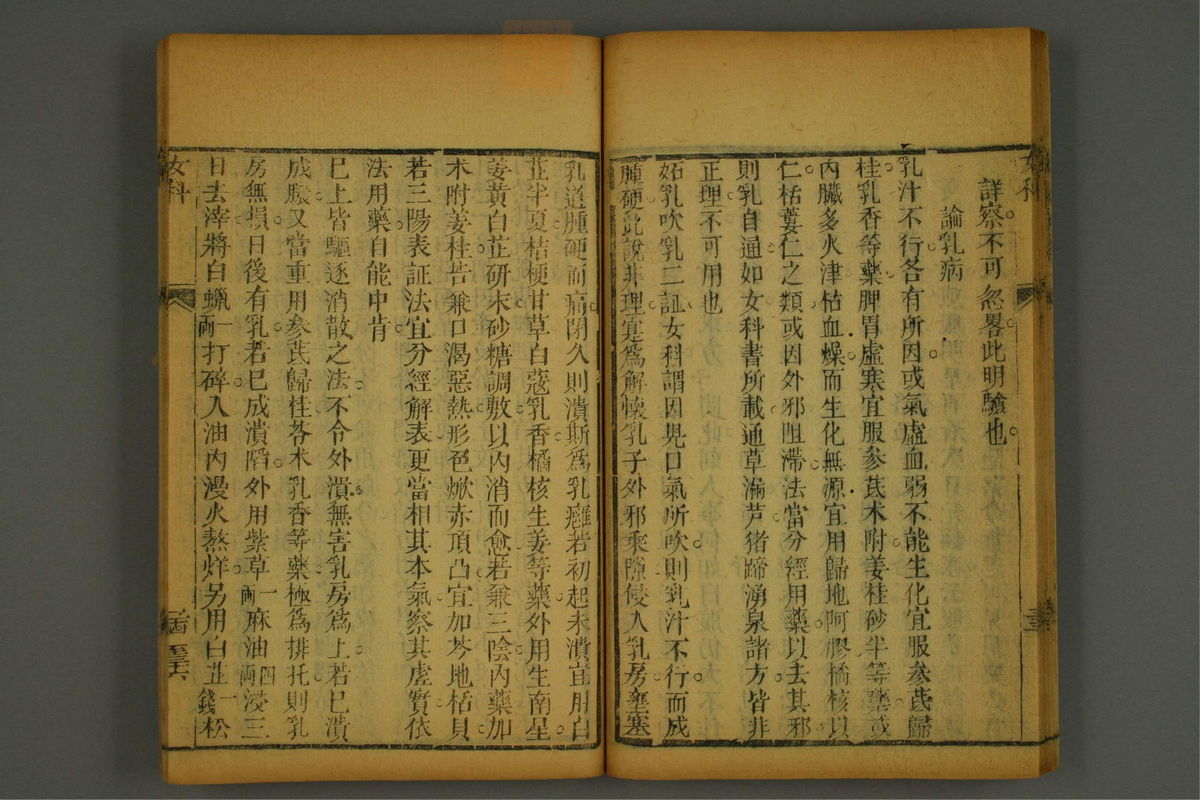 女科
詳察不可忽畧此明驗也
論乳病
乳汁不行各有所因或氣虛血弱不能生化宜服參茋歸
桂乳香等藥脾胃虛寒宜服參茋术附姜桂砂半等藥或
內臟多火津枯血燥而生化無源宜用歸地阿膠橘核以
仁栝蔞仁之類或因外邪阻滯法當分經用藥以去其邪
則乳自通如女科書所載通草漏芦猪蹄湧泉諸方皆非
正理不可用也
妬乳吹乳二証女科謂因兒口氣所吹則乳汁不行而成
腫硬此說非理寔為解懷乳子外邪乘隙侵入乳房壅塞
乳道腫硬而痛閉久則潰斯為乳癰若初起未潰宜用白
芷半夏桔梗甘草白蔻乳香橘核生姜等藥外用生南星
姜黃白芷研末砂糖調敷以內消而愈若兼三陰內藥加
术附姜桂若兼口渴惡熱形色焮赤頂凸宜加芩地栝貝
若三陽表証法宜分經解表更當相其本氣察其虛實依
法用藥自能中肯
巳上皆驅逐消散之法不令外潰無害乳房為上若巳潰
成膿又當重用參茋歸桂苓术乳香等藥極為排托則乳
房無損日後有乳若巳成潰陷外用紫草一兩麻油四兩浸三
日去滓將白蠟一兩打碎入油內漫火熬烊另用白芷一錢松
女科